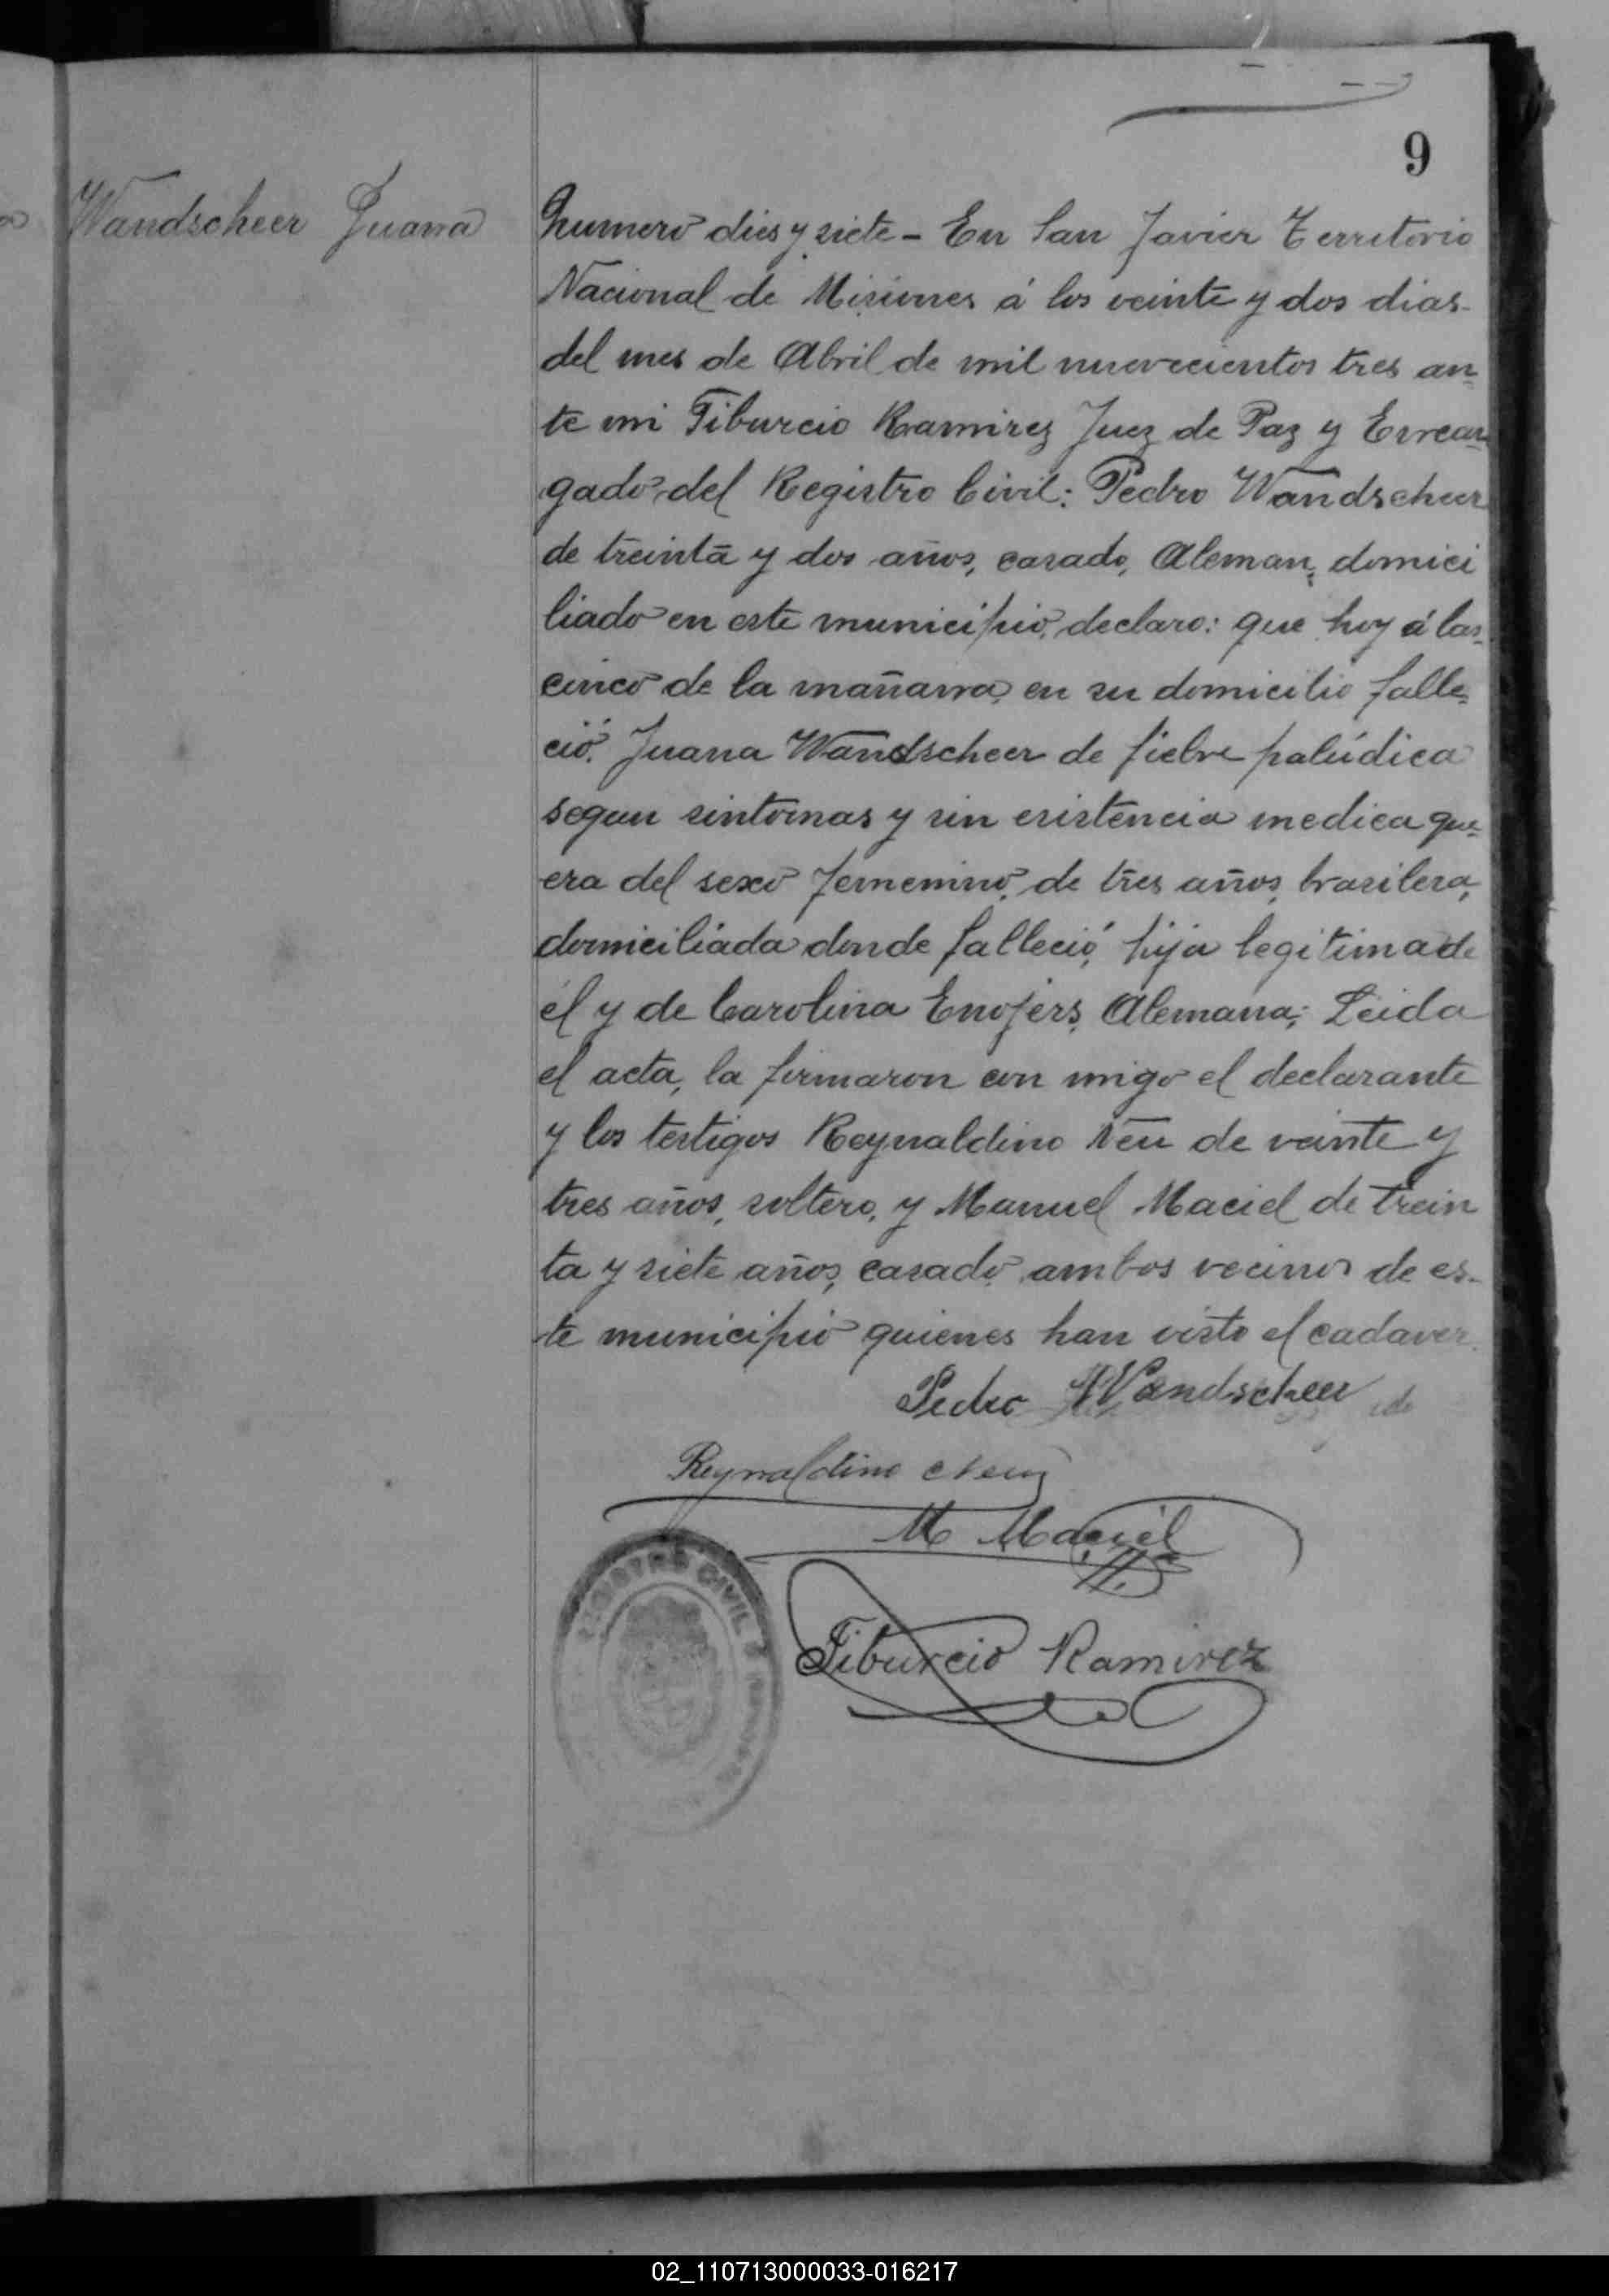 9
Wandscheer Juana
Numero dies y siete - En San Javier Territorio
Nacional de Misiones á los veinte y dos dias
del mes de Abril de mil nuevecientos tres an
te mi Tiburcio Ramirez Juez de Paz y Encar
gado del Registro Civil: Pedro Wandscheer
de treinta y dos años, casado, Aleman, domici
liado en este municipio, declaro: que hoy á las
cinco de la mañana, en su domicilio falle
ció Juana Wandscheer de fiebre palúdica
segun sintomas y sin esistencia medica que
era del sexo femenino, de tres años, brasilera,
domiciliada donde falleció, hija legitima de
él y de Carolina Enofers, Alemana; Leida
el acta, la firmaron con migo el declarante
y los testigos Reynaldino Neu de veinte y
tres años, soltero, y Manuel Maciel de trein
ta y siete años, casado, ambos vecinos de es-
te municipio quienes han visto el cadaver.
Pedro Wandscheer
Reynaldino Neu
M Maciel
Tiburcio Ramirez
REGISTRO CIVIL
02_110713000033-016217